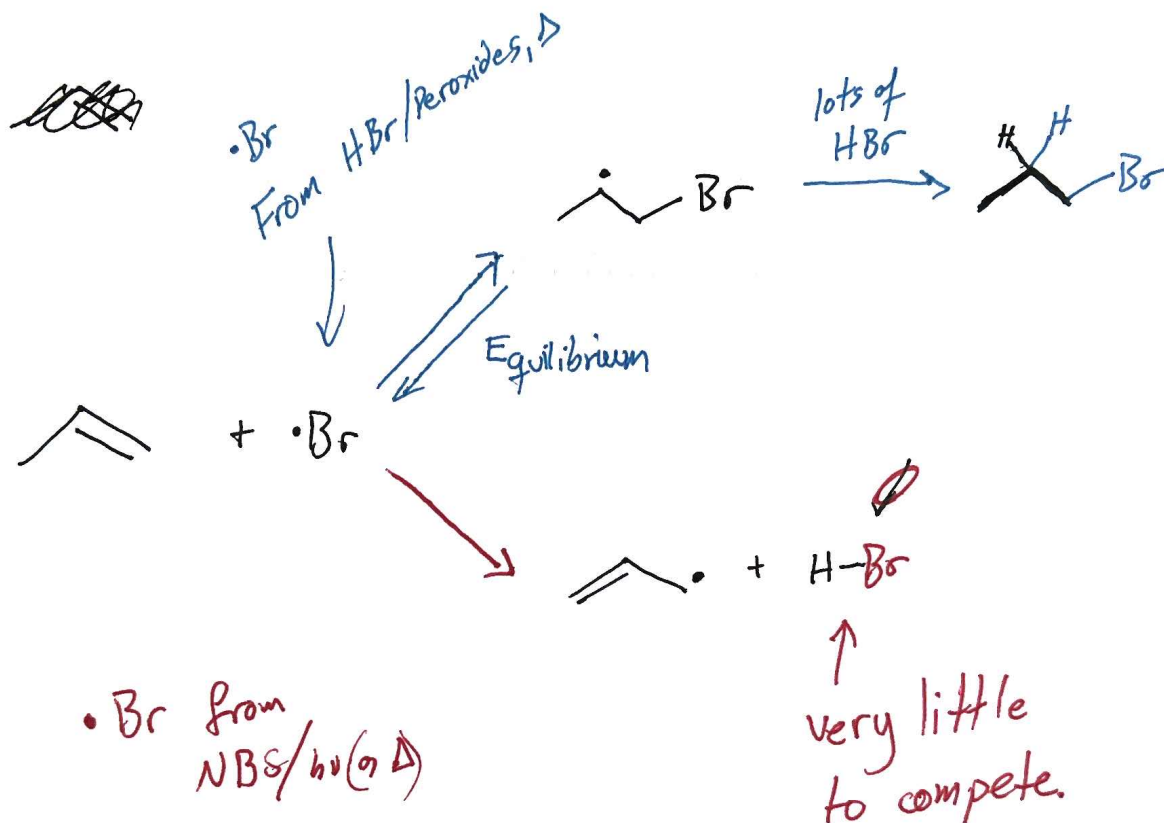 •Br
From HBr/Peroxides, Δ
lots of
HBr
Br
H H
Br
Equilibrium
+ •Br
+ H–Br
•Br from
NBS/hν(or Δ)
very little
to compete.